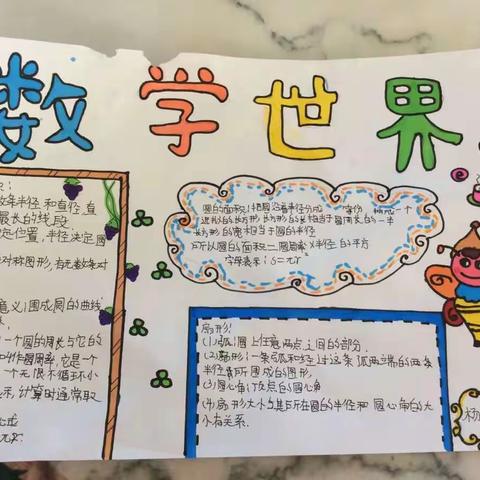 数学世界
半径和直径,直
最长的线段
定位置,半径决定圆
对称图形,有无数条对
意义:围成圆的曲线
一个圆的周长与它的
叫作圆周率,它是一个
一个无限不循环小
示,计算时通常取
圆的面积:把圆沿着半径分成 等份 一个
近似的长方形,长方形的长相当于圆周长的一半
长方形的宽相当于圆的半径
所以圆的面积=圆周率×半径的平方
字母表示:S=πr²
扇形:
(1)弧:圆上任意两点之间的部分.
(2)扇形:一条弧和经过这条弧两端的两条
半径所围成的图形.
(3)圆心角:顶点的圆心角
(4)扇形大小与其所在圆的半径和圆心角的大
小有关系.